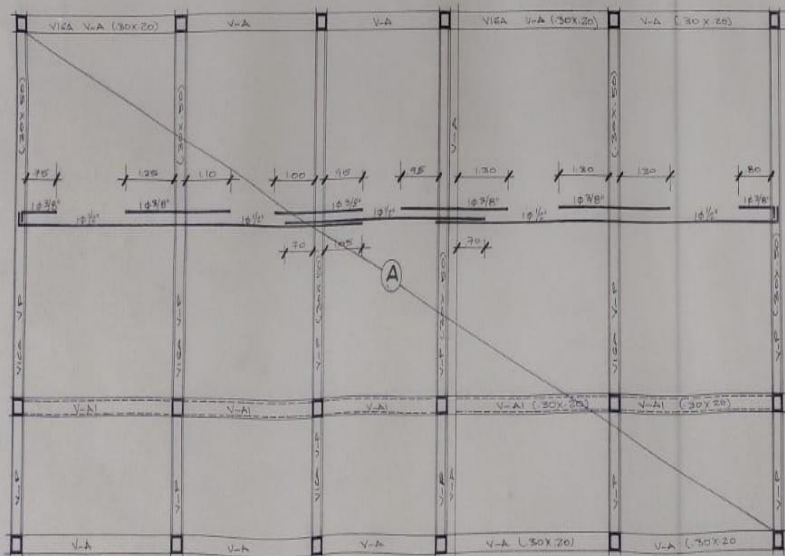 VIGA V-A (.30x.20) V-A V-A VIGA V-A (.30x.20) V-A (.30x.20)
(.30x.50) (.30x.50) V-A (.30x.50)
75 1.25 1.10 1.00 95 95 1.30 1.30 1.30 80
1ϕ3/8" 1ϕ3/8" 1ϕ3/8" 1ϕ3/8" 1ϕ3/8" 1ϕ3/8"
1ϕ½" 1ϕ½" 1ϕ½" 1ϕ½"
70 1.05 70
A
VIGA V-P VIGA V-P V-P (.30x.50) V-P (.30x.50) VIGA V-P V-P (.30x.50)
V-A1 V-A1 V-A1 V-A1 (.30x.20) V-A1 (.30x.20)
V-P V-P VIGA V-P V-P V-A V-P V-P
V-A V-A V-A V-A (.30x.20) V-A (.30x.20